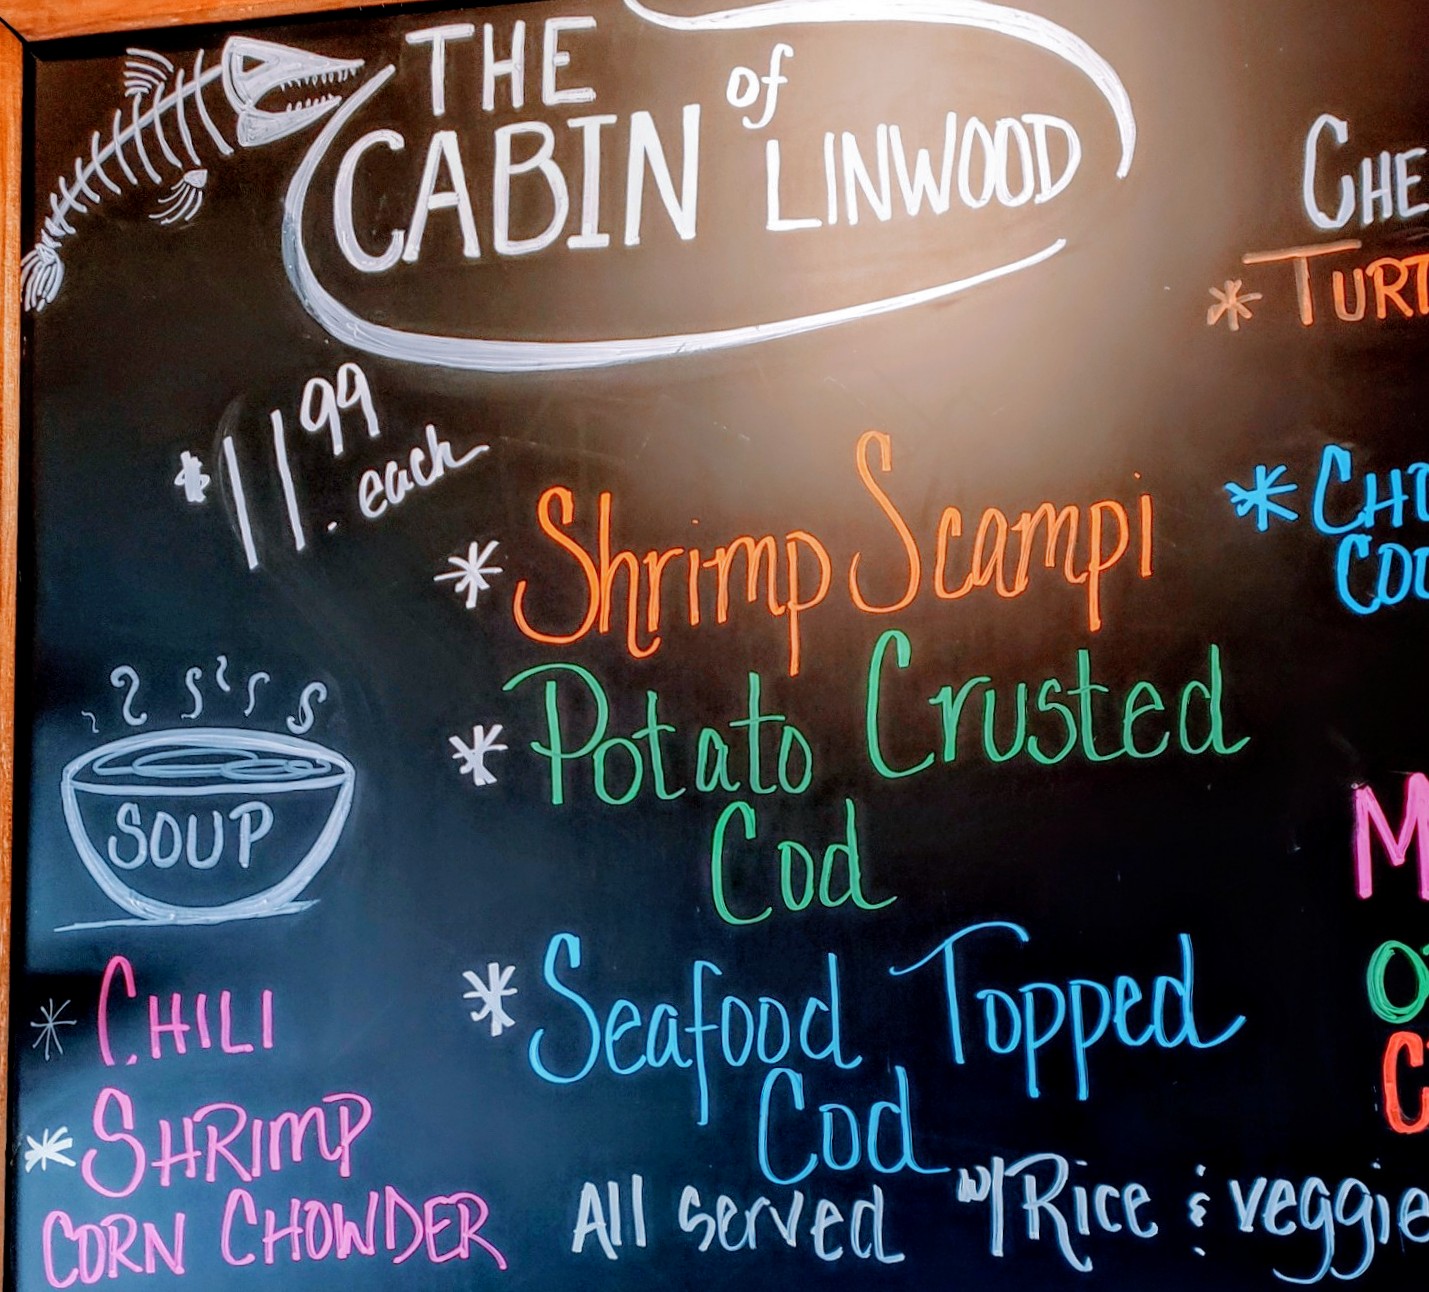 THE
CABIN of LINWOOD
$11.99 each
* Shrimp Scampi
* Potato Crusted
Cod
* Seafood Topped
Cod
All served w/ Rice & veggie
SOUP
* CHILI
* SHRIMP
CORN CHOWDER
CHE
* TURT
* CHO
COO
M
C